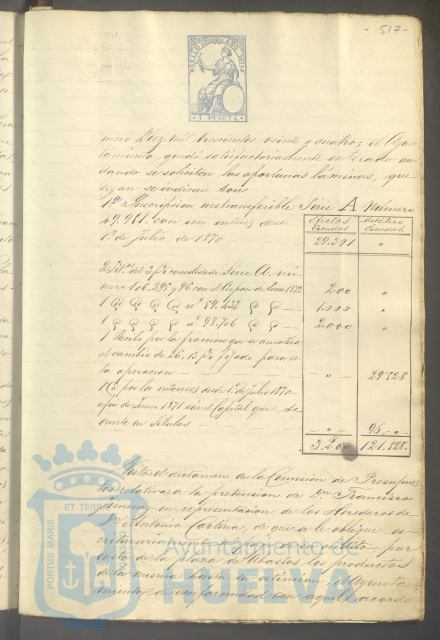 - 517 -
SELLO 10º AÑO 1871
1 PESETA
mero Diez mil trescientos veinte y cuatro; el Ayun
tamiento quedó satisfactoriamente enterado
dando se soliciten las oportunas láminas, que
segun se indican son
1ª Inscripcion intransferible Série A Número
49.981 con un interés desde
1º de Julio de 1870
Efectos Metálico
Escudos. Escudos.
29.391 "
2 del 3 p% consolidado Série A. nú
mero 106.295 y 96 con el Cupon de Enero 1872 200 "
1 nº 89.422 1.000 "
1 nº 98.706 2000 "
1 Recibo por la fraccion que se
al cambio de 26,13 p% fijado para es
ta operacion " 29.528
por los intereses desde 1º de Julio 1870
a fin de Junio 1871 del Capital que se
emite en Titulos " 96 "
3.200 121.828
Visto el dictamen de la Comision de Presupues
tos relativo a la pretension de Don Francisco
Jimenez en representacion de los Herederos de
Dn Antonio Cortina, de que se le oblique es
por
de la plaza de Abastos los productos
de la misma hasta su estincion; el Ayunta
miento, de conformidad con aquel acordó
PORTUS MARIS ET TERRAE
Ayuntamiento de
HUELVA